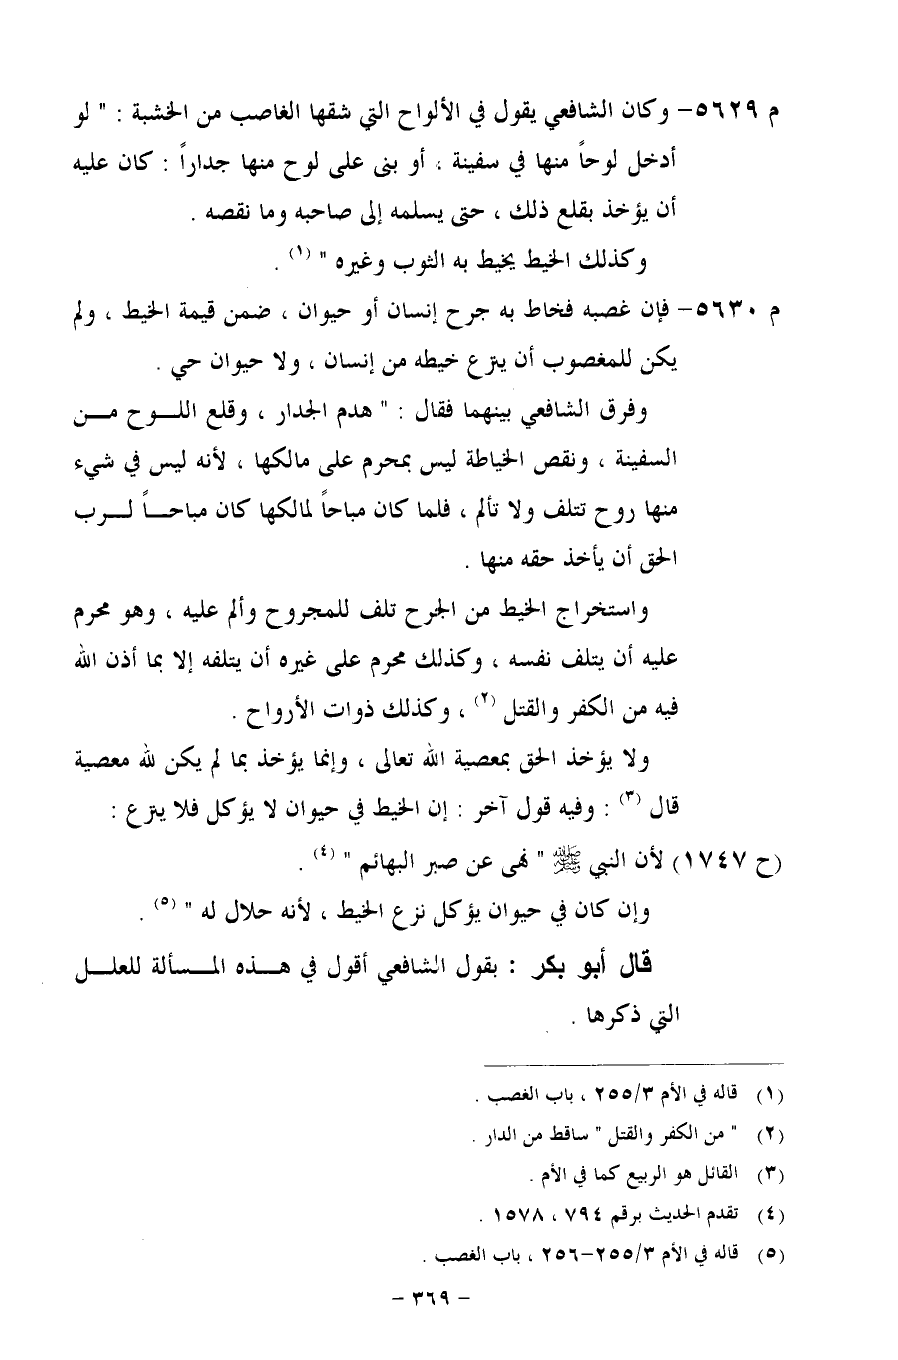 م ٥٦٢٩- وكان الشافعي يقول في الألواح التي شقها الغاصب من الخشبة : " لو
أدخل لوحاً منها في سفينة ، أو بنى على لوح منها جداراً : كان عليه
أن يؤخذ بقلع ذلك ، حتى يسلمه إلى صاحبه وما نقصه .
وكذلك الخيط يخيط به الثوب وغيره " (١) .
م ٥٦٣٠- فإن غصبه فخاط به جرح إنسان أو حيوان ، ضمن قيمة الخيط ، ولم
يكن للمغصوب أن ينزع خيطه من إنسان ، ولا حيوان حي .
وفرق الشافعي بينهما فقال : " هدم الجدار ، وقلع اللـــوح مـــن
السفينة ، ونقص الخياطة ليس بمحرم على مالكها ، لأنه ليس في شيء
منها روح تتلف ولا تألم ، فلما كان مباحاً لمالكها كان مباحـــاً لـــرب
الحق أن يأخذ حقه منها .
واستخراج الخيط من الجرح تلف للمجروح وألم عليه ، وهو محرم
عليه أن يتلف نفسه ، وكذلك محرم على غيره أن يتلفه إلا بما أذن الله
فيه من الكفر والقتل (٢) ، وكذلك ذوات الأرواح .
ولا يؤخذ الحق بمعصية الله تعالى ، وإنما يؤخذ بما لم يكن لله معصية
قال (٣) : وفيه قول آخر : إن الخيط في حيوان لا يؤكل فلا ينزع :
(ح ١٧٤٧) لأن النبي ﷺ " نهى عن صبر البهائم " (٤) .
وإن كان في حيوان يؤكل نزع الخيط ، لأنه حلال له " (٥) .
قال أبو بكر : بقول الشافعي أقول في هـــذه المـــسألة للعلـــل
التي ذكرها .
(١) قاله في الأم ٢٥٥/٣ ، باب الغصب .
(٢) " من الكفر والقتل " ساقط من الدار .
(٣) القائل هو الربيع كما في الأم .
(٤) تقدم الحديث برقم ٧٩٤ ، ١٥٧٨ .
(٥) قاله في الأم ٢٥٥/٣-٢٥٦ ، باب الغصب .
- ٣٦٩ -